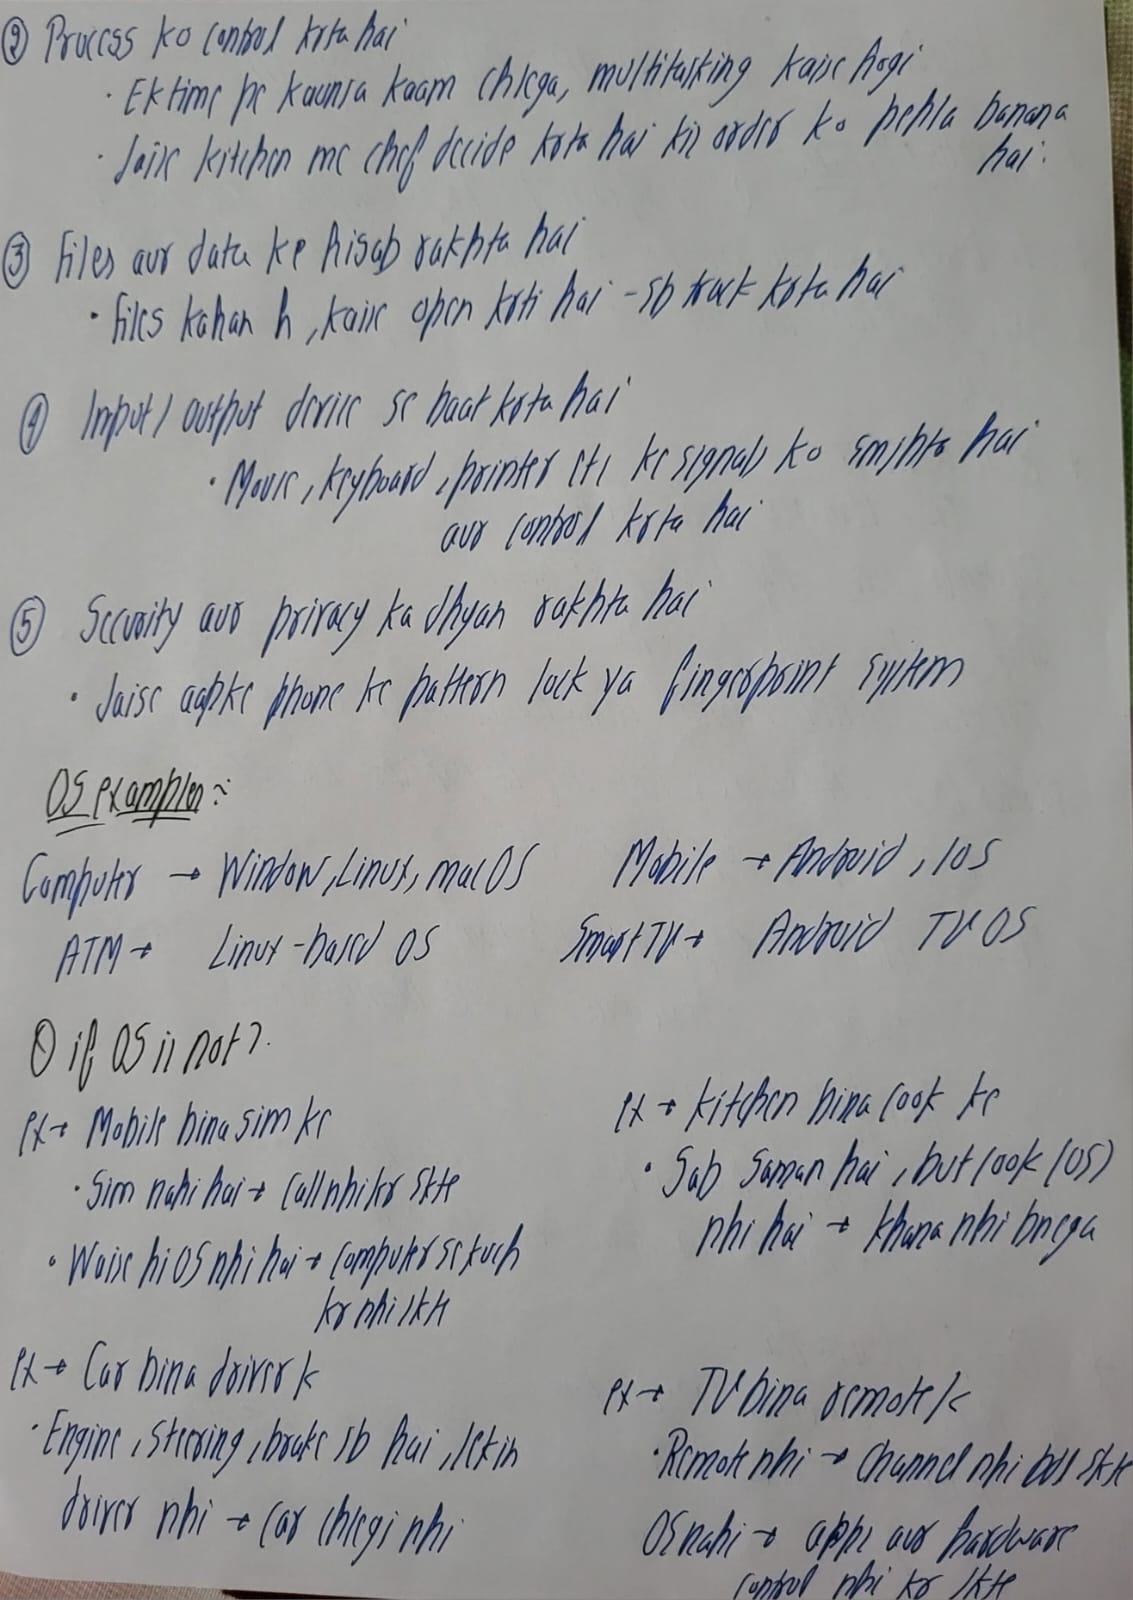 ② Process ko control krta hai
· Ek time pe kaunsa kaam chlega, multitasking kaise hogi
· Jaise kitchen me chef decide krta hai kis order ko pehla banana
hai.
③ Files aur data ke hisab rakhta hai
· files kahan h, kaise open krti hai - sb track krta hai
④ Input/output device se baat krta hai
· Mouse, keyboard, printer etc ke signals ko smjhta hai
aur control krta hai
⑤ Security aur privacy ka dhyan rakhta hai
· Jaise aapke phone ke pattern lock ya fingerprint system
OS examples :-
Computer → Window, Linux, macOS Mobile → Android, IOS
ATM → Linux-based OS Smart TV → Android TV OS
Q if OS is not?
ex → Mobile bina sim ke
· Sim nahi hai → Call nhi kr skte
· Waise hi OS nhi hai → Computer se kuch
kr nhi skte
ex → Kitchen bina cook ke
· Sab Saman hai, but cook (OS)
nhi hai → khana nhi bnega
ex → Car bina driver k
· Engine, steering, brake sb hai, lekin
driver nhi → car chlegi nhi
ex → TV bina remote k
· Remote nhi → Channel nhi bdl skte
OS nahi → apps aur hardware
control nhi kr skte